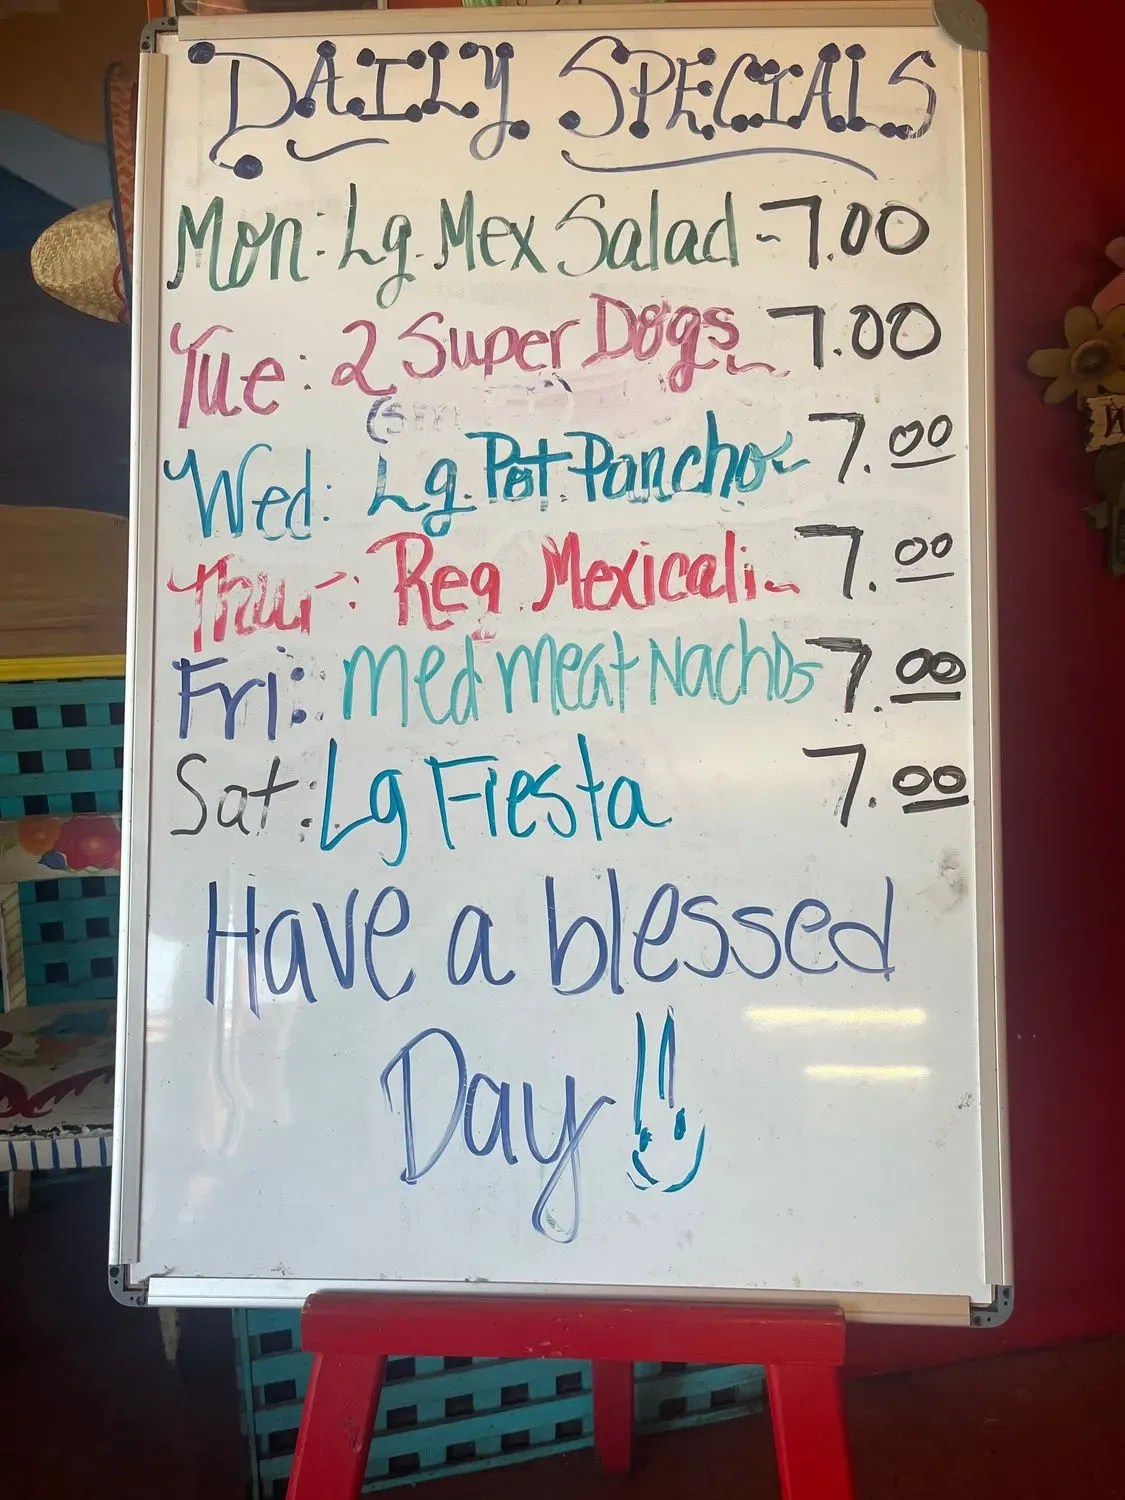 DAILY SPECIALS
Mon: Lg. Mex Salad - 7.00
Tue: 2 Super Dogs 7.00
Wed: Lg. Pot. Pancho - 7.00
Thur: Reg. Mexicali - 7.00
Fri: Med Meat Nachos 7.00
Sat: Lg Fiesta 7.00
Have a blessed
Day!!